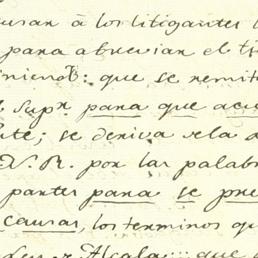 usan á los litigantes
para abreviar el t
que se remit
Sup.r para que acu
se deriva de la
N. R. por las palab
partes para se pre
causas, los terminos qu
Alcala